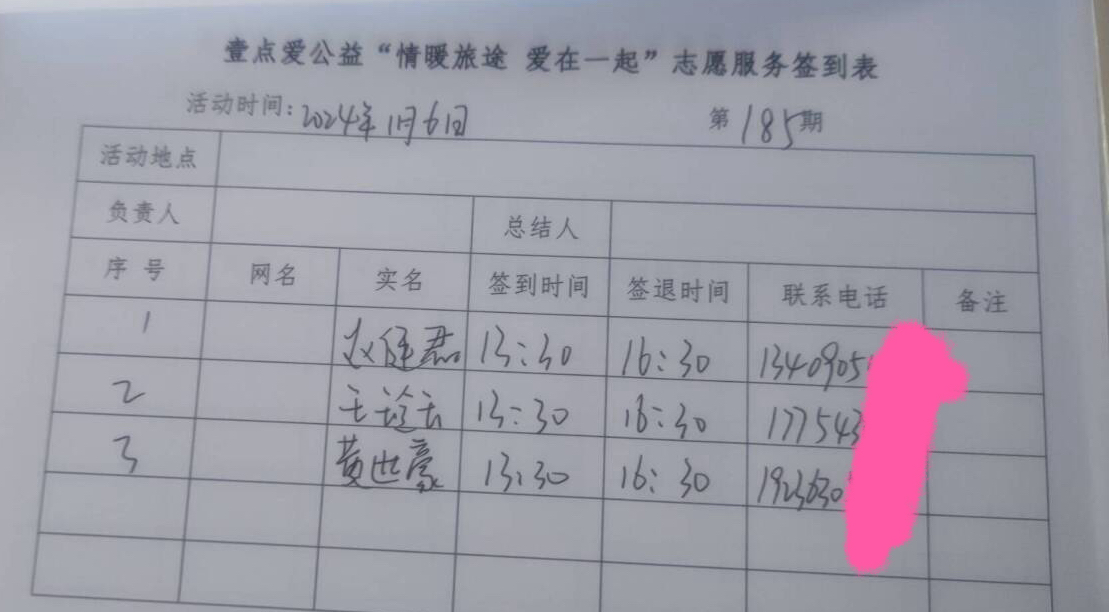 壹点爱公益“情暖旅途 爱在一起”志愿服务签到表
活动时间：2024年1月6日 第185期
活动地点
负责人 总结人
序号 网名 实名 签到时间 签退时间 联系电话 备注
1 赵健君 13:30 16:30 1340905
2 13:30 16:30 177543
3 黄世豪 13:30 16:30 1923630